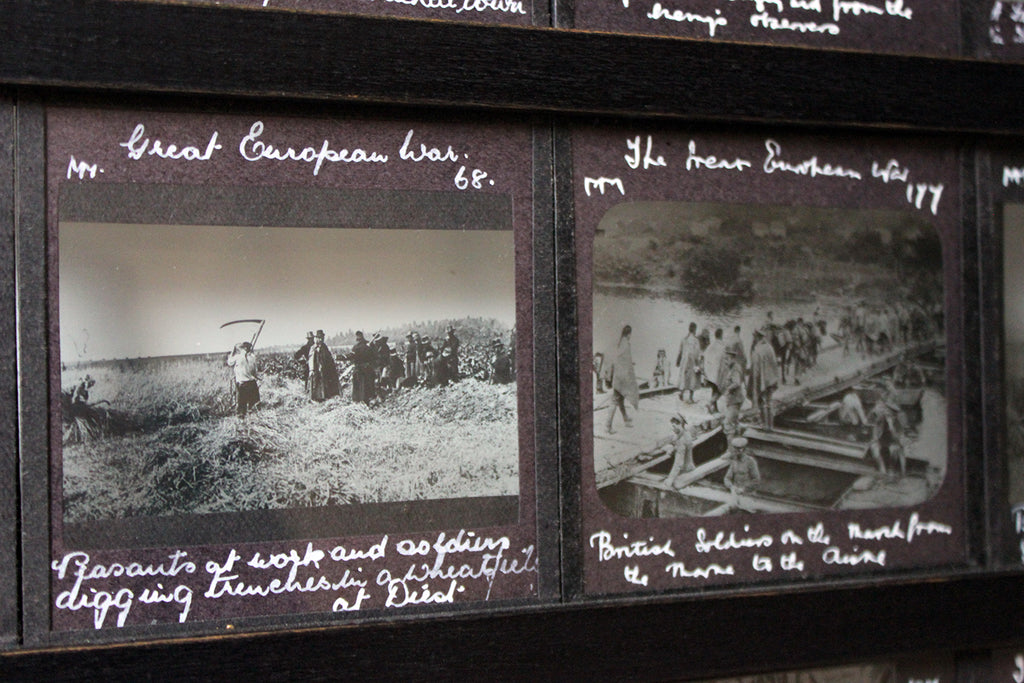 town
from the
enemy's observers
Great European War.
M.
68.
Peasants at work and soldiers
digging trenches in a wheatfield
at Diest
The Great European War
M
177
British Soldiers on the March from
the Marne to the Aisne